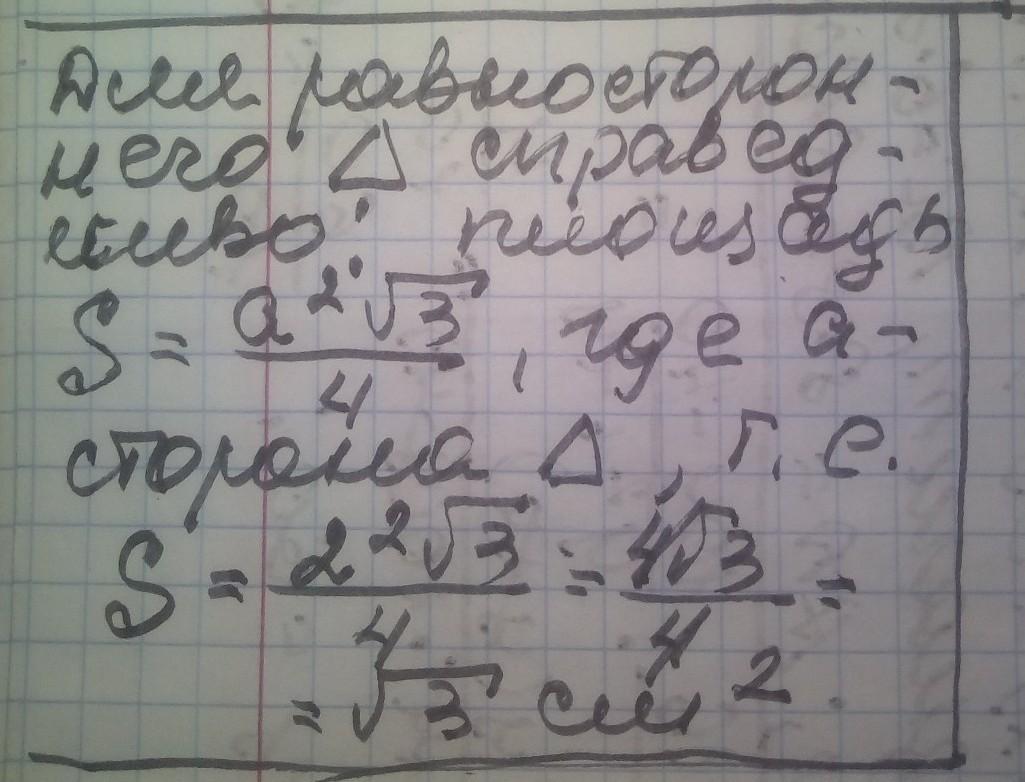 Для равносторон-
него △ справед-
ливо: площадь
S = a²√3/4, где a-
сторона △, т. е.
S = 2²√3/4 = 4√3/4 =
= √3 см²